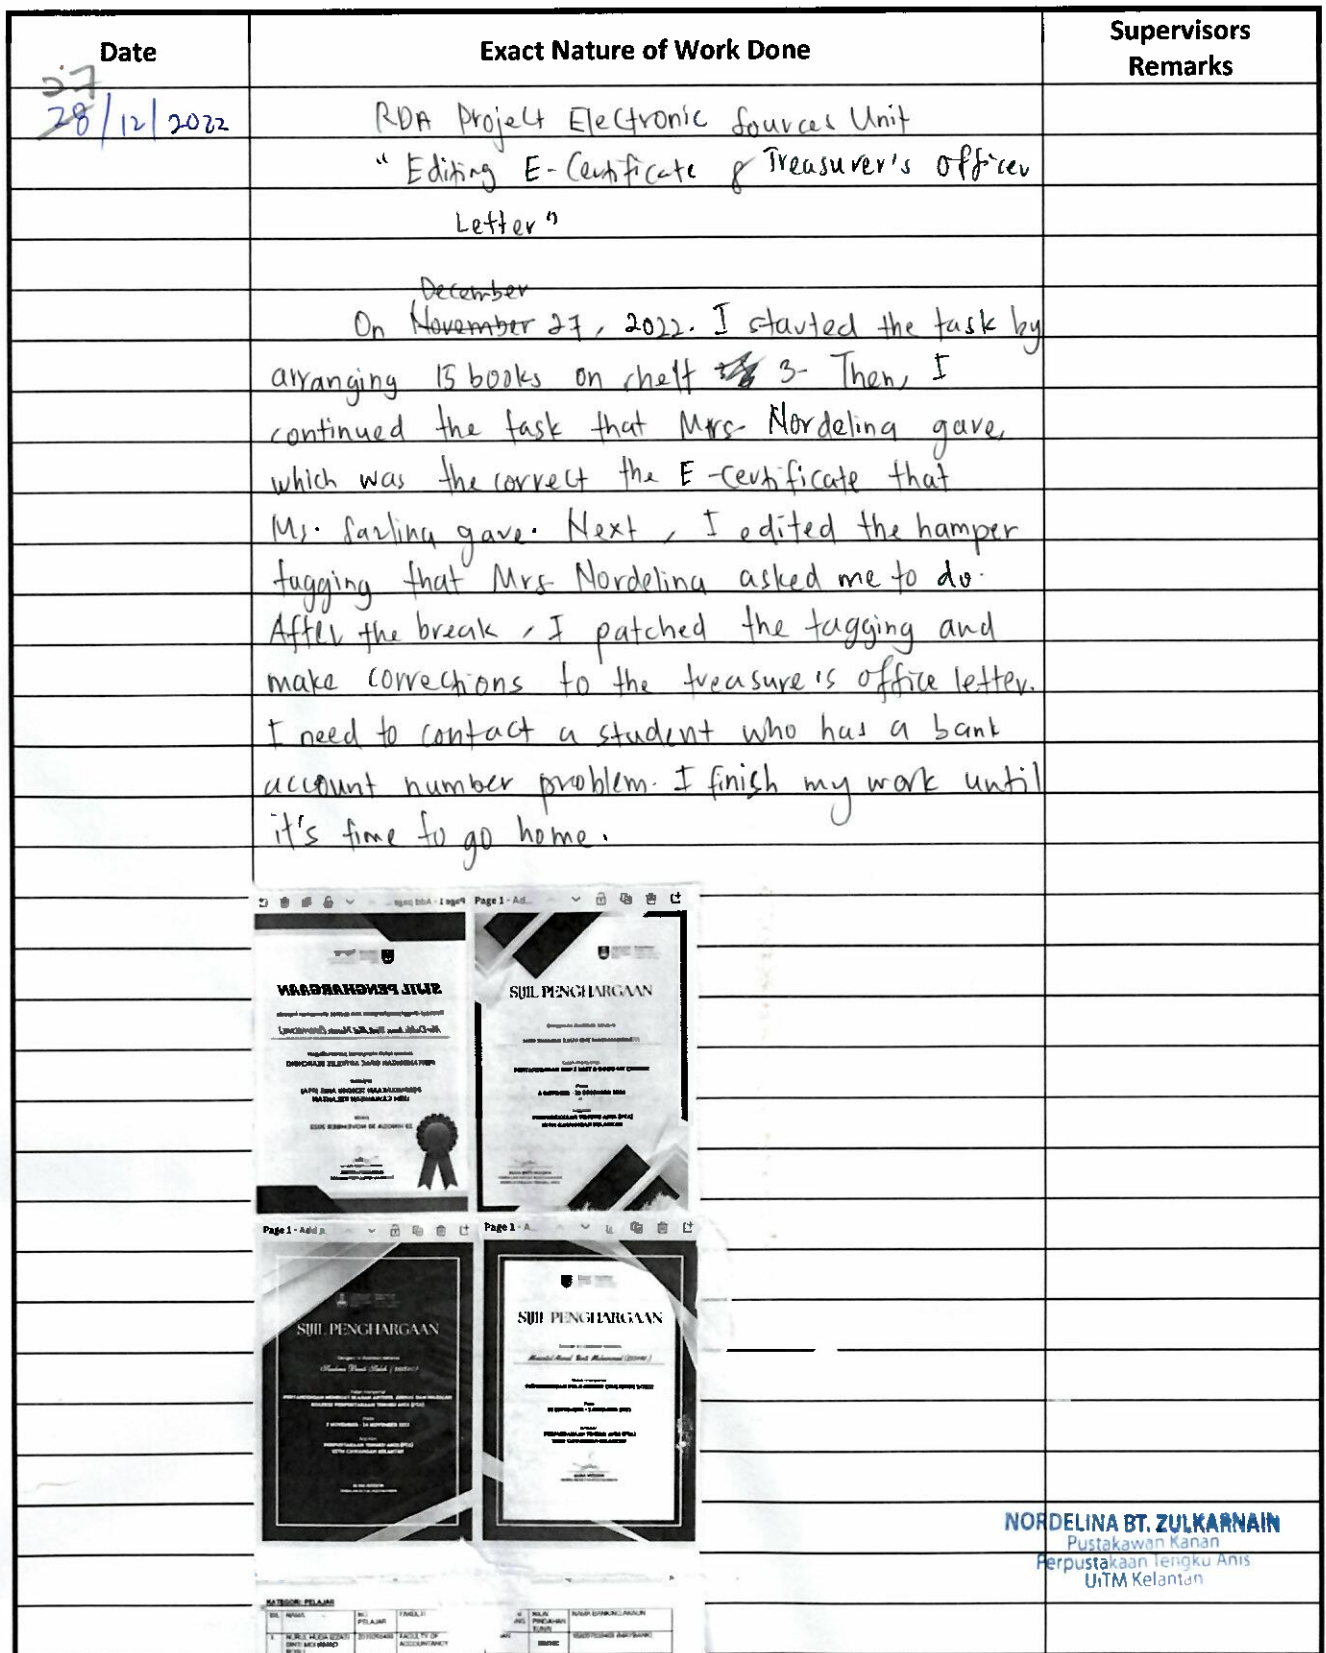 Date
Exact Nature of Work Done
Supervisors
Remarks
27
28/12/2022
RDA Project Electronic Sources Unit
"Editing E-Certificate & Treasurer's officer
Letter"
December
On November 27, 2022. I started the task by
arranging 15 books on shelf 3. Then, I
continued the task that Mrs. Nordelina gave,
which was the correct the E-certificate that
Ms. Sazlina gave. Next, I edited the hamper
tagging that Mrs Nordelina asked me to do.
After the break, I patched the tagging and
make corrections to the treasure's office letter.
I need to contact a student who has a bank
account number problem. I finish my work until
it's time to go home.
Page 1 - Add page
Page 1 - Ad...
SIJIL PENGHARGAAN
SIJIL PENGHARGAAN
Page 1 - Add p
Page 1 - A...
SIJIL PENGHARGAAN
SIJIL PENGHARGAAN
7 NOVEMBER - 24 NOVEMBER 2022
PERPUSTAKAAN TENGKU ANIS (PTA)
UITM CAWANGAN KELANTAN
NORDELINA BT. ZULKARNAIN
Pustakawan Kanan
Perpustakaan Tengku Anis
UiTM Kelantan
KATEGORI: PELAJAR
BIL NAMA NO. PELAJAR FAKULTI
FACULTY OF
ACCOUNTANCY